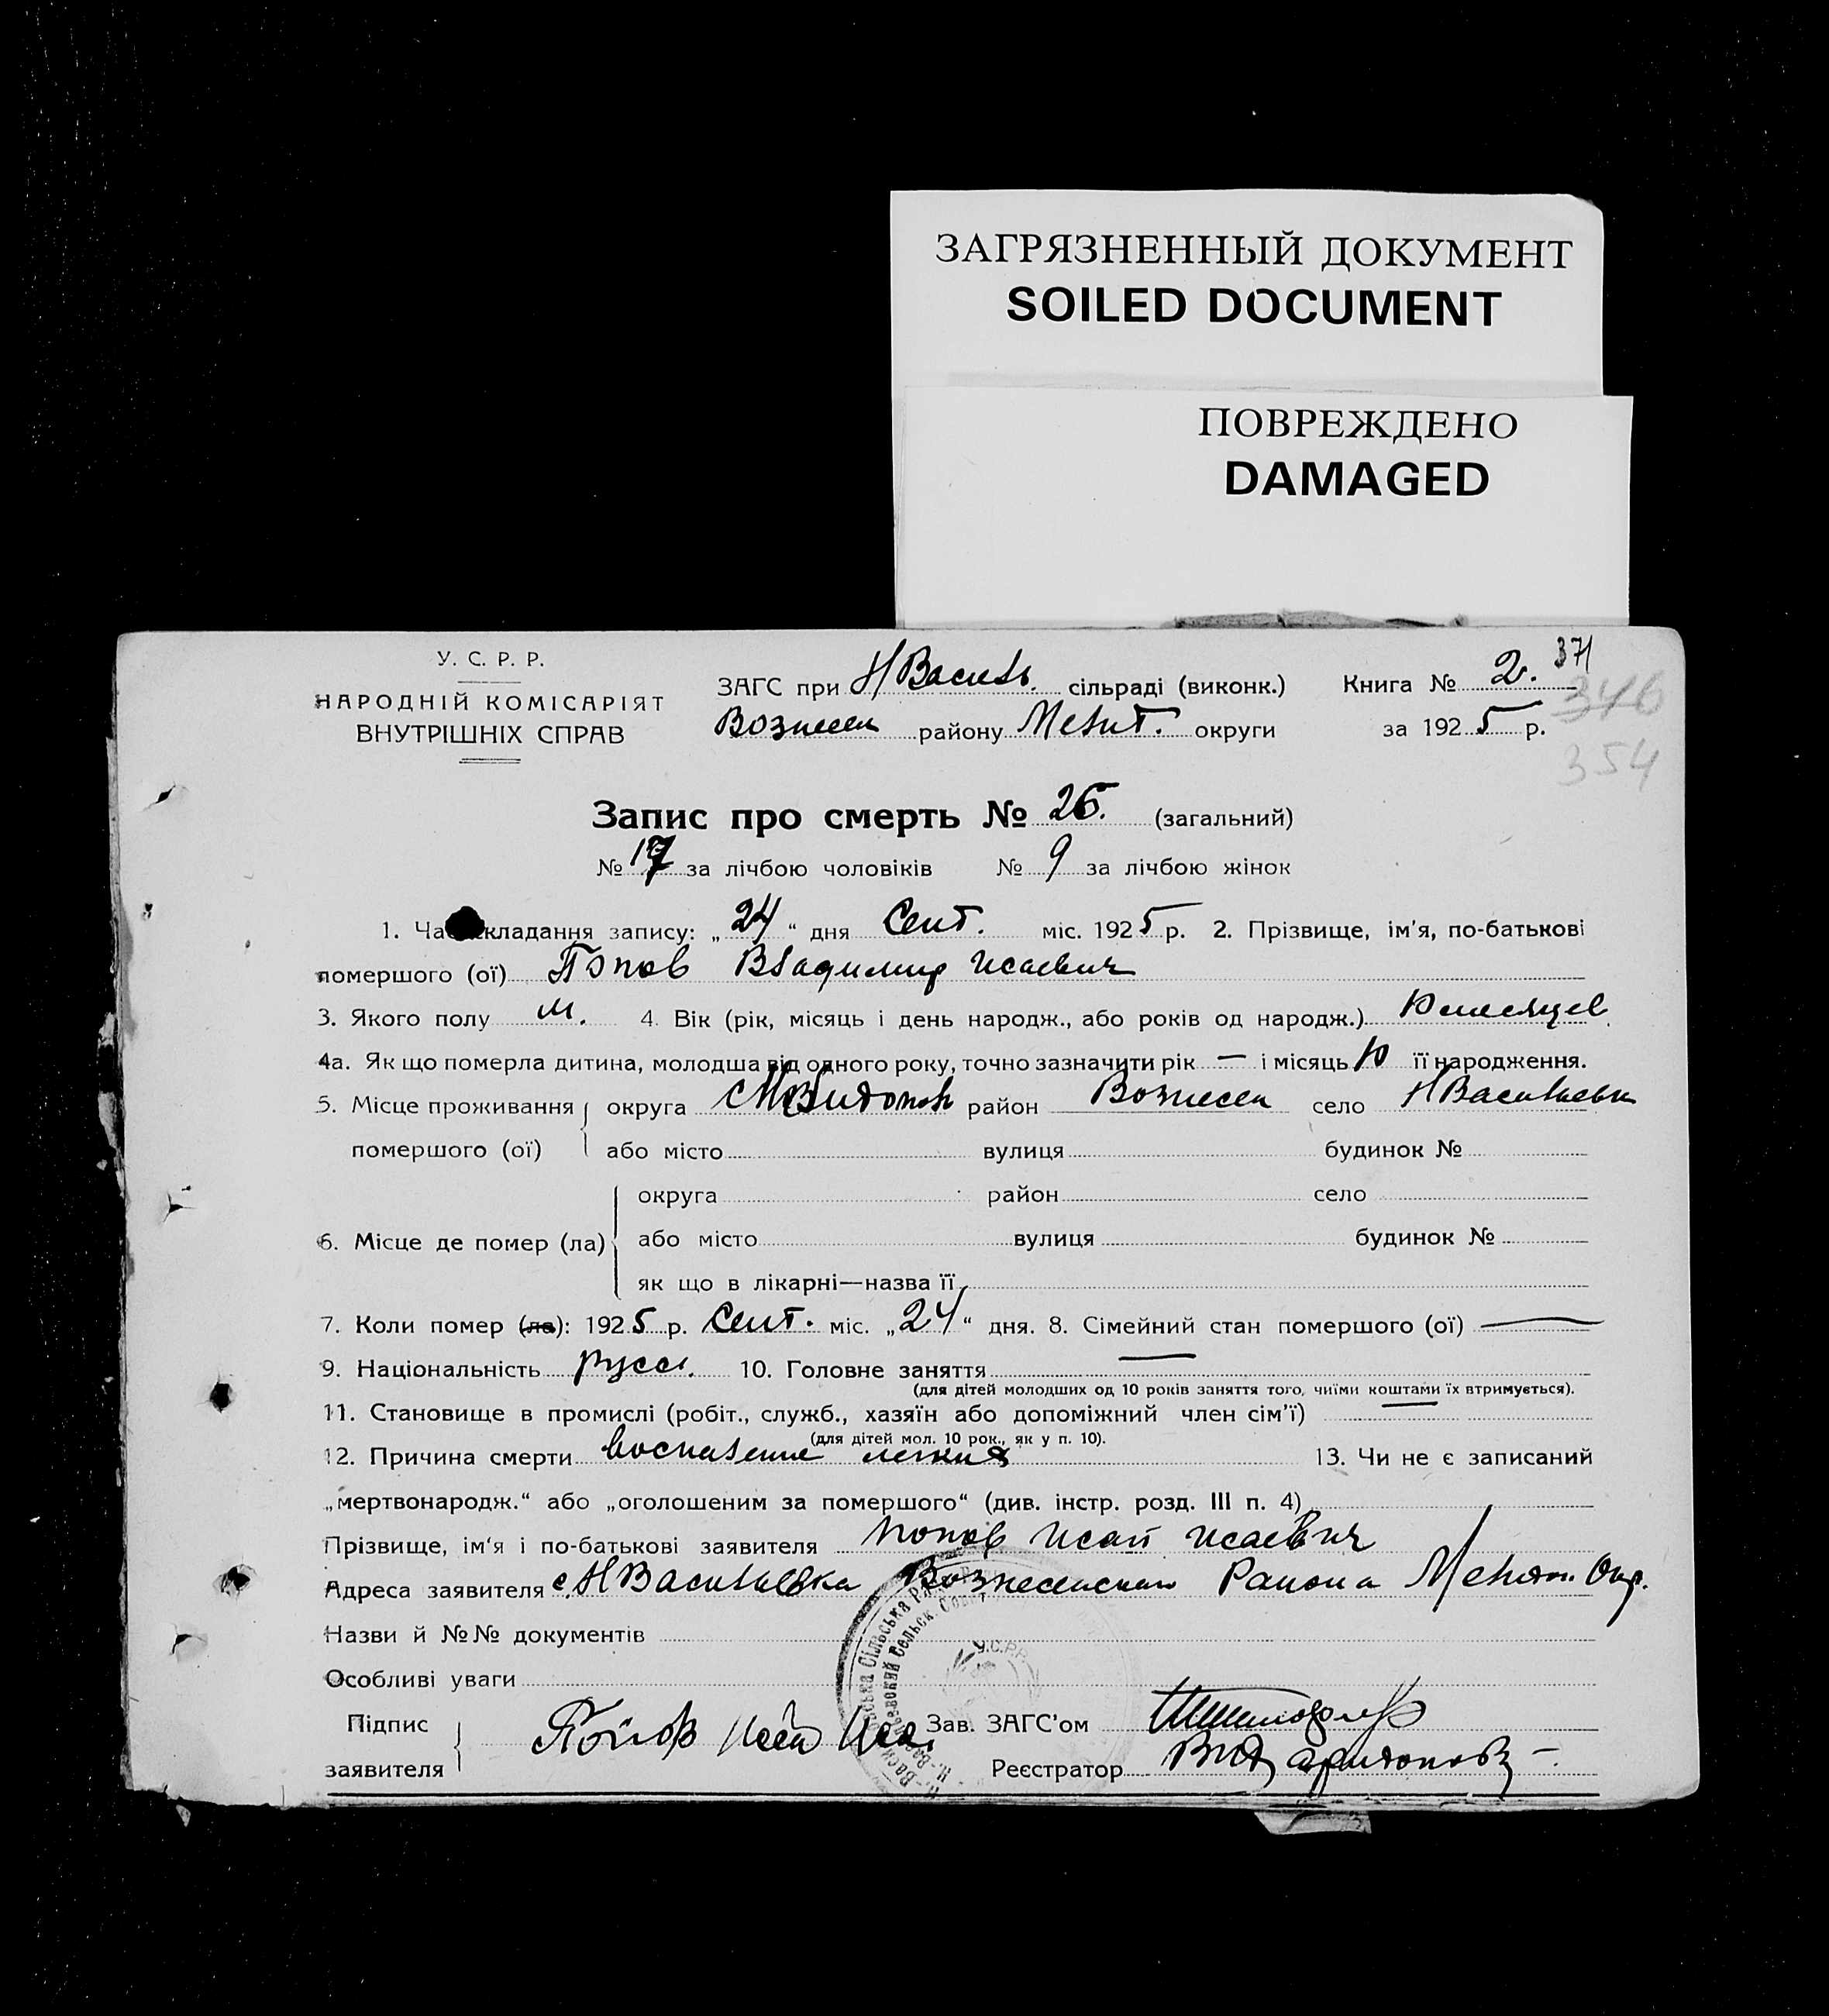 ЗАГРЯЗНЕННЫЙ ДОКУМЕНТ
SOILED DOCUMENT
ПОВРЕЖДЕНО
DAMAGED
371
346
354
У. С. Р. Р.
НАРОДНІЙ КОМІСАРІЯТ
ВНУТРІШНІХ СПРАВ
ЗАГС при Н Василь. сільраді (виконк.) Книга № 2.
Вознесен району Мелит. округи за 1925 р.
Запис про смерть № 26. (загальний)
№ 17 за лічбою чоловіків № 9 за лічбою жінок
1. Ча кладання запису: „24“ дня Сент. міс. 1925 р. 2. Прізвище, ім'я, по-батькові
помершого (ої) Попов Владимир Исаевич
3. Якого полу м. 4. Вік (рік, місяць і день народж., або років од народж.) 10 месяцев
4а. Як що померла дитина, молодша від одного року, точно зазначити рік — і місяць 10 її народження.
5. Місце проживання округа район Вознесен село Н Васильевк
помершого (ої) або місто вулиця будинок №
округа район село
6. Місце де помер (ла) або місто вулиця будинок №
як що в лікарні—назва її
7. Коли помер (ла): 1925 р. Сент. міс. „24“ дня. 8. Сімейний стан помершого (ої) —
9. Національність русск. 10. Головне заняття —
(для дітей молодших од 10 років заняття того, чиїми коштами їх втримується).
11. Становище в промислі (робіт., служб., хазяїн або допоміжний член сім'ї) —
(для дітей мол. 10 рок., як у п. 10).
12. Причина смерти воспаление легких 13. Чи не є записаний
„мертвонародж.“ або „оголошеним за помершого“ (див. інстр. розд. III п. 4)
Прізвище, ім'я і по-батькові заявителя Попов Исай Исаевич
Адреса заявителя с. Н Васильевка Вознесенского Района Мелитоп. Окр.
Назви й №№ документів
Особливі уваги
Підпис
заявителя
Попов Исай Иса
Зав. ЗАГС'ом
Реєстратор
Сільська Ра
Сельск. Сов
У.С.Р.Р.